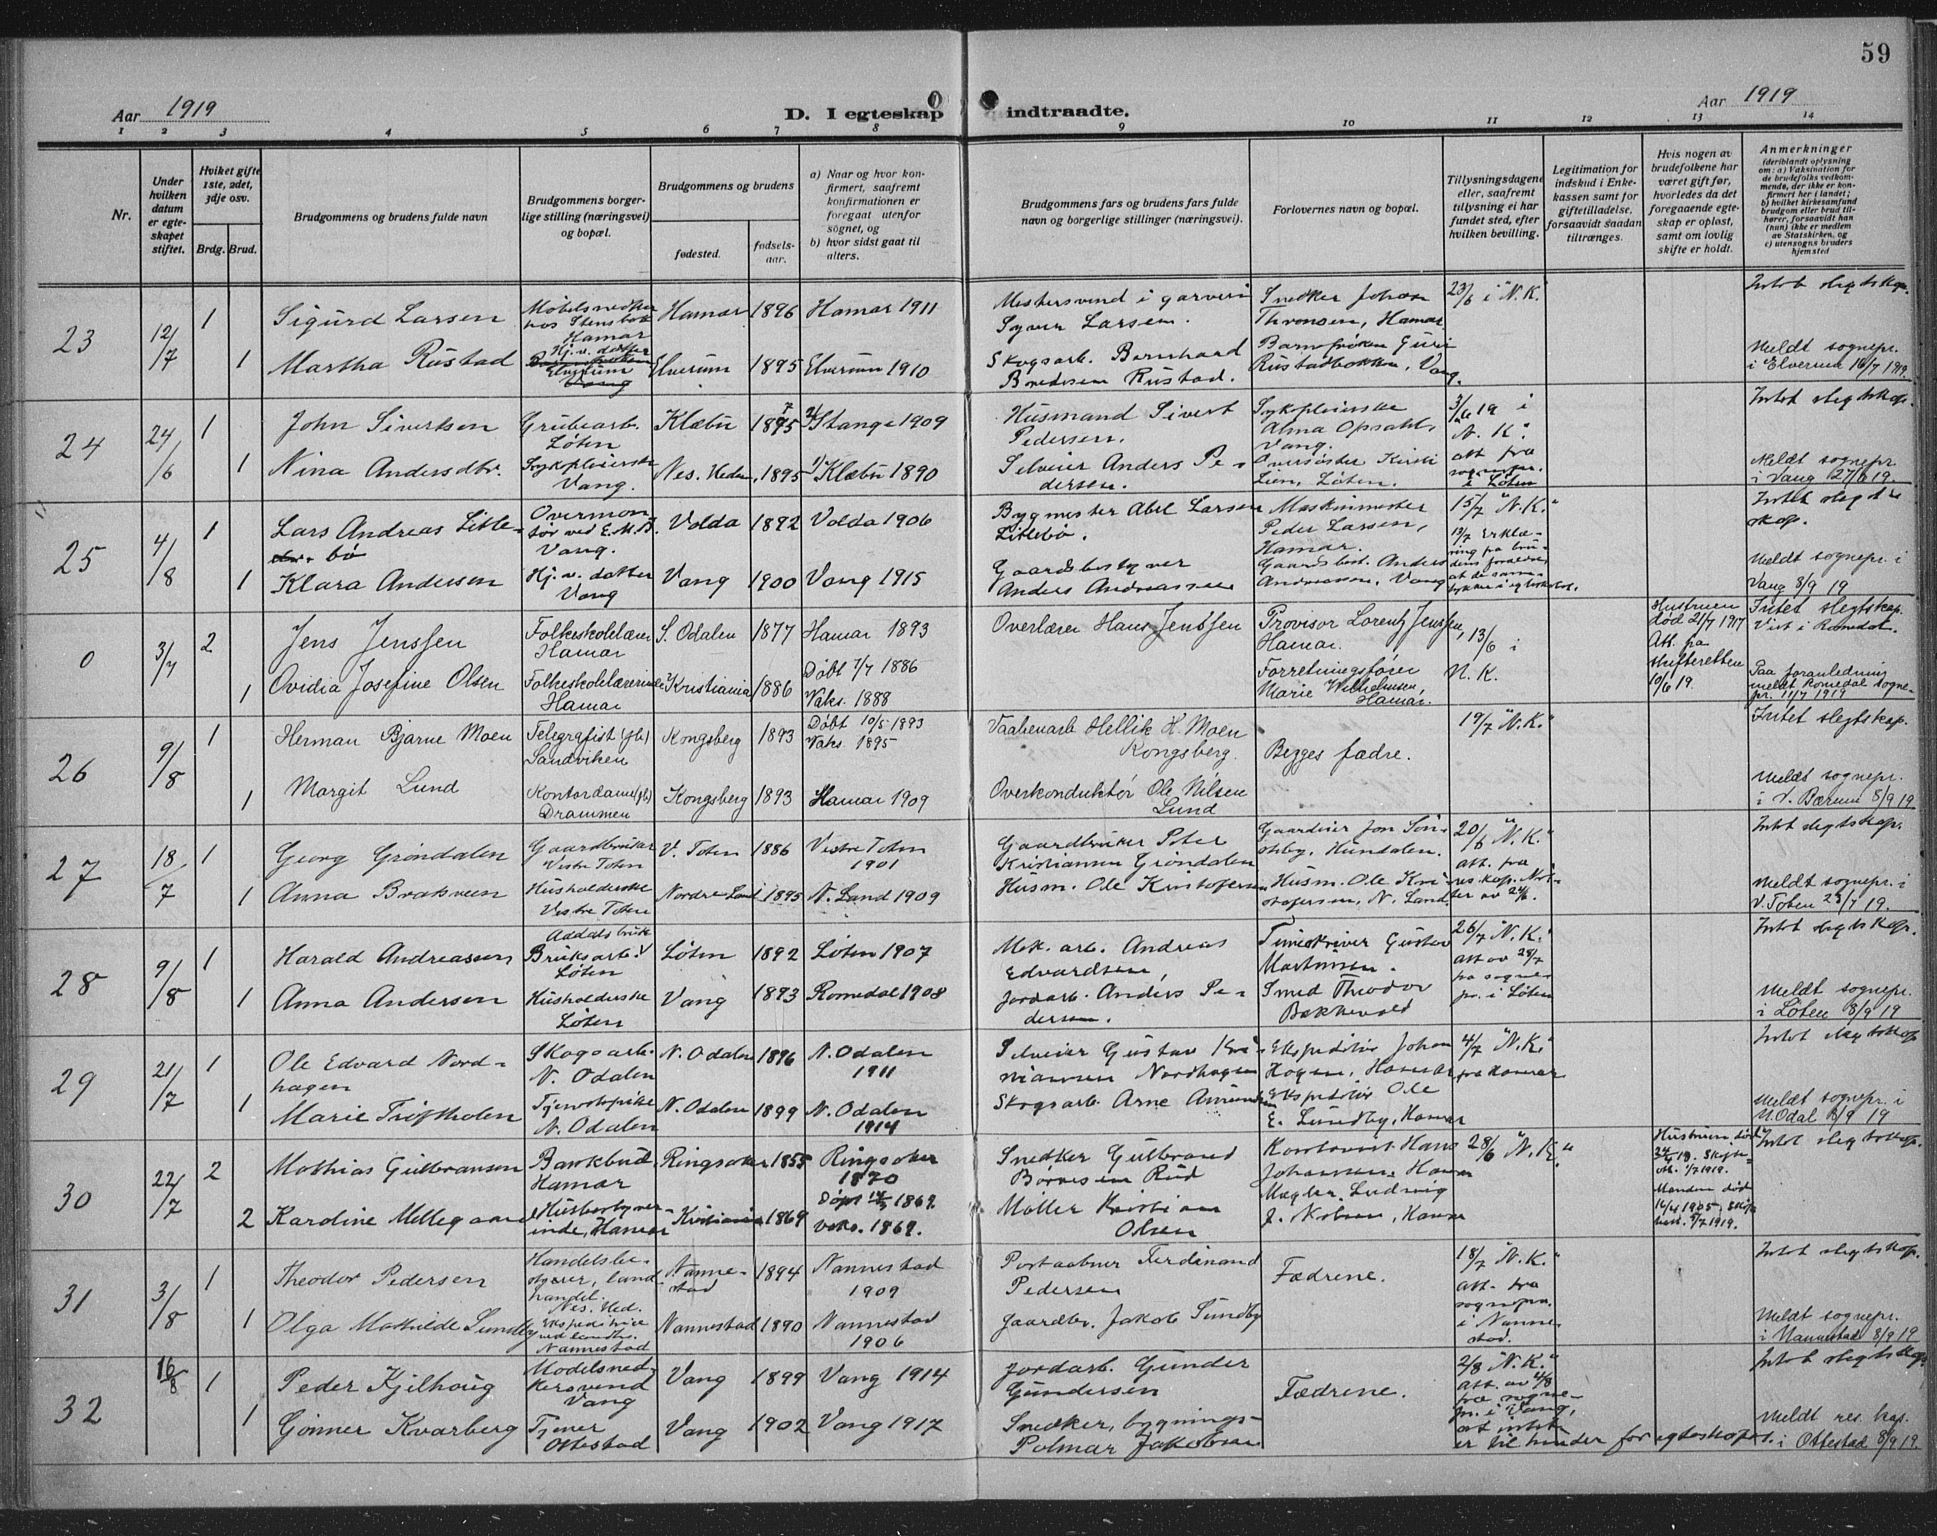 59
Aar 1919
D. I egteskap indtraadte.
Aar 1919
1 2 3 4 5 6 7 8 9 10 11 12 13 14
Nr.
Under hvilken datum er egteskapet stiftet.
Hviket gifte 1ste, 2det, 3dje osv.
Brdg. Brud.
Brudgommens og brudens fulde navn
Brudgommens borgerlige stilling (næringsvei) og bopæl.
Brudgommens og brudens
fødested.
fødselsaar.
a) Naar og hvor konfirmert, saafremt konfirmationen er foregaat utenfor sognet, og
b) hvor sidst gaat til alters.
Brudgommens fars og brudens fars fulde navn og borgerlige stillinger (næringsvei).
Forlovernes navn og bopæl.
Tillysningsdagene eller, saafremt tillysning ei har fundet sted, efter hvilken bevilling.
Legitimation for indskud i Enkekassen samt for giftetilladelse, forsaavidt saadan tiltrænges.
Hvis nogen av brudefolkene har været gift før, hvorledes da det foregaaende egteskap er opløst, samt om lovlig skifte er holdt.
Anmerkninger
(deriblandt oplysning om: a) Vaksination for de brudefolks vedkommende, der ikke er konfirmert her i landet;
b) hvilket kirkesamfund brudgom eller brud tilhører, forsaavidt han (hun) ikke er medlem av Statskirken, og
c) utensogns bruders hjemsted
23 12/7 1 Sigurd Larsen Møbelsnedker hos Stensbak Hamar Hamar 1896 Hamar 1911 Mestersvend i garveri Syver Larsen. Snedker Johan Thronsen, Hamar. 23/6 i "N.K." Intet slegtskap.
1 Martha Rustad Hj.v. datter Elverum Elverum 1895 Elverum 1910 Skogsarb. Bernhard Bredesen Rustad. Barnfrøken Guri Rustadbakken, Vang. Meldt sognepr. i Elverum 16/7 1919.
24 24/6 1 John Sivertsen Grubearb. Løten Klæbu 1895 Stange 1909 Husmand Sivert Pedersen. Sykepleierske Alma Opsahl, Vang. 3/6 19 i "N.K." att. fra sognepr. i Løten Intet slegtskap.
1 Nina Andersdtr. Sykepleierske Vang. Nes. Hedm. 1895 Klæbu 1890 Selveier Anders Pedersen. Oversøster Kirsti Lien, Løten. Meldt sognepr. i Vang 27/6 19.
25 4/8 1 Lars Andreas Litlebø Overmontør ved E.M.B. Vang. Volda 1892 Volda 1906 Bygmester Abel Larsen Litlebø. Maskinmester Peder Larsen, Hamar. 15/7 "N.K." Intet slegtskap.
1 Klara Andersen Hj.v. datter Vang Vang 1900 Vang 1915 Gaardsbestyrer Anders Andreassen Gaardsbest. Anders Andreassen, Vang 19/7 Erklæring fra brudens forældre at de samtykker i egteskabet. Meldt sognepr. i Vang 8/9 19
0 3/7 2 Jens Jenssen Folkeskolelærer Hamar S. Odalen 1877 Hamar 1893 Overlærer Hans Jenssen Provisor Lorentz Jenssen, Hamar. 13/6 i N.K. Hustruen død 21/7 1917 Att. fra skifteretten 10/6 19. Intet slegtskap. Viet i Romedal.
1 Ovidia Josefine Olsen Folkeskolelærerinde Hamar Kristiania 1886 Døbt 7/7 1886 Vaks. 1888 Forretningsfører Marie Wilhelmsen, Hamar. Paa foranledning meldt Romedal sognepr. 11/7 1919
26 9/8 1 Herman Bjarne Moen Telegrafist (jb) Sandviken Kongsberg 1893 Døbt 10/5 1893 Vaks. 1895 Vaabenarb Hellik H. Moen Kongsberg. Begges fædre. 19/7 "N.K." Intet slegtskap.
1 Margit Lund Kontordame (jb) Drammen Kongsberg 1893 Hamar 1909 Overkonduktør Ole Nilsen Lund Meldt sognepr. i V. Bærum 8/9 19
27 18/7 1 Georg Grøndalen Gaardbruker Vestre Toten V. Toten 1886 Vestre Toten 1901 Gaardbruker Peter Kristiansen Grøndalen Gaardeier Jon Sønsteby, Hundalen. 20/6 "N.K." att. fra res. kap. Intet slegtskap.
1 Anna Brakveen Husholderske Vestre Toten Nordre Land 1895 N. Land 1909 Husm. Ole Kristofersen Husm. Ole Kristofersen, N. Land Meldt sognepr. i V. Toten 23/7 19.
28 9/8 1 Harald Andreassen Aadals bruk Bruksarb. v Løten Løten 1892 Løten 1907 Mek. arb. Andreas Edvardsen, Timeskriver Gustav Martinsen. 26/7 "N.K." att av 29/7 fra sognepr. i Løten Intet slegtskap.
1 Anna Andersen Husholderske Løten Vang 1893 Romedal 1908 Jordarb. Anders Pedersen. Smed Theodor Bakkevold Meldt sognepr. i Løten 8/9 19
29 21/7 1 Ole Edvard Nordhagen Skogsarb. N. Odalen N. Odalen 1896 N. Odalen 1911 Selveier Gustav Kristiansen Nordhagen Ekspeditør Johan Hogen, Hamar 4/7 "N.K." fra Hamar Intet slegtskap
1 Marie Trøftholen Tjenestepike N. Odalen N. Odalen 1899 N. Odalen 1914 Skogsarb Arne Amundsen Ekspeditør Ole E. Lundby, Hamar Meldt sognepr. i N. Odal 8/9 19
30 22/7 2 Mathias Gulbransen Bankbud Hamar Ringsaker 1855 Ringsaker 1870 Snedker Gulbrand Børresen Rud Kontorist Hans Johansen, Hamar 28/6 "N.K." Hustruen død 18. Skifteatt. 1/7 1919. Intet slegtskap.
2 Karoline Mellegaard Husbestyrerinde, Hamar Kristiania 1869 Døpt 1869. vaks. 1869. Møller Kristian Olsen Mægler Ludvig J. Nilsen, Hamar Manden død 16/4 1905, 1/7 1919.
31 3/8 1 Theodor Pedersen Handelsbestyrer, landhandel. Nes. Hed. Nannestad 1894 Nannestad 1909 Postaabner Ferdinand Pedersen Fædrene. 18/7 "N.K." Att. fra sognepr. i Nannestad. Intet slegtskap.
1 Olga Mathilde Sundby Ekspeditrice ved landh. Nannestad Nannestad 1890 Nannestad 1906 Gaardbr. Jakob Sundby Meldt sognepr. i Nannestad 8/9 19
32 16/8 1 Peder Kjilhoug Modelsnedkersvend Vang Vang 1899 Vang 1914 Jordarb. Gunder Gundersen Fædrene. 2/8 "N.K." Att. av 4/8 fra sognepr. i Vang, at intet er til hinder for egteskapet. Intet slegtskap
1 Gønner Kvarberg Tjener Ottestad Vang 1902 Vang 1917 Snedker, bygnings- Polmar Jakobsen Meldt res. kap. i Ottestad 8/9 19.